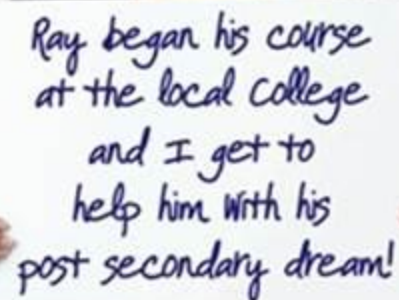 Ray began his course
at the local College
and I get to
help him with his
post secondary dream!